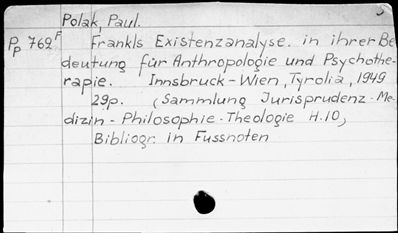 Polak, Paul.
Pp 762F Frankls Existenzanalyse. in ihrer Be
deutung für Anthropologie und Psychothe-
rapie. Innsbruck-Wien, Tyrolia, 1949
29p. (Sammlung Jurisprudenz-Me-
dizin-Philosophie-Theologie H.10)
Bibliogr. in Fussnoten